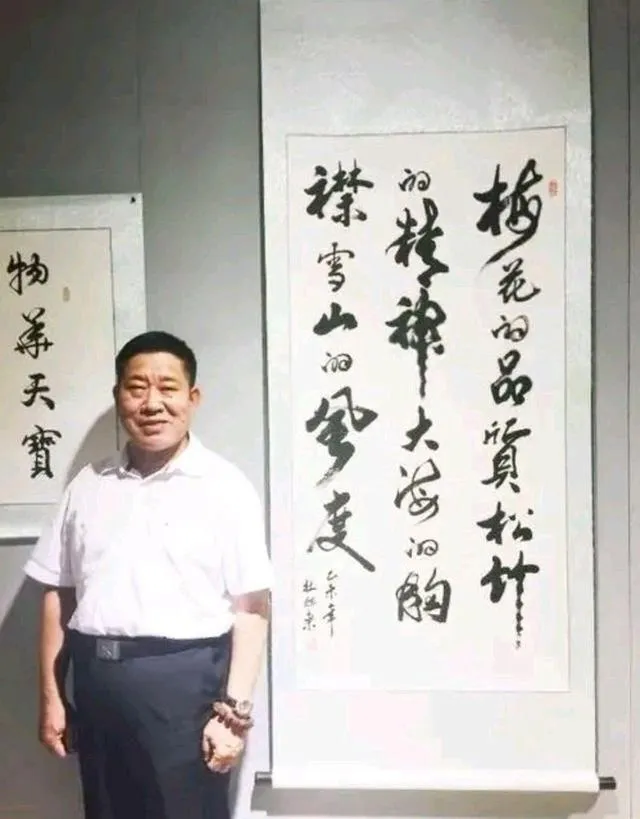 梅花的品质松竹
的精神大海的胸
襟雪山的风度
乙未年
物華天寶